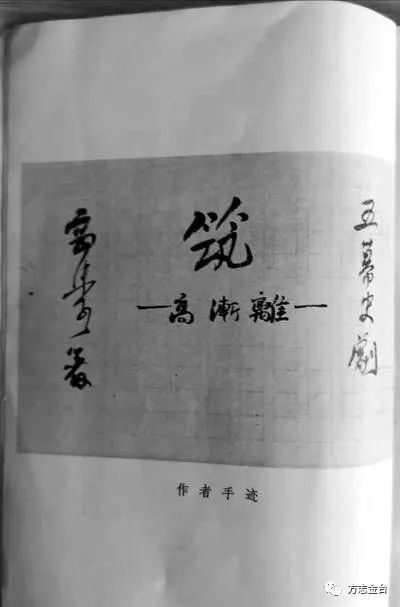 五幕史劇
筑
—高漸離—
著
作者手迹
方志金台